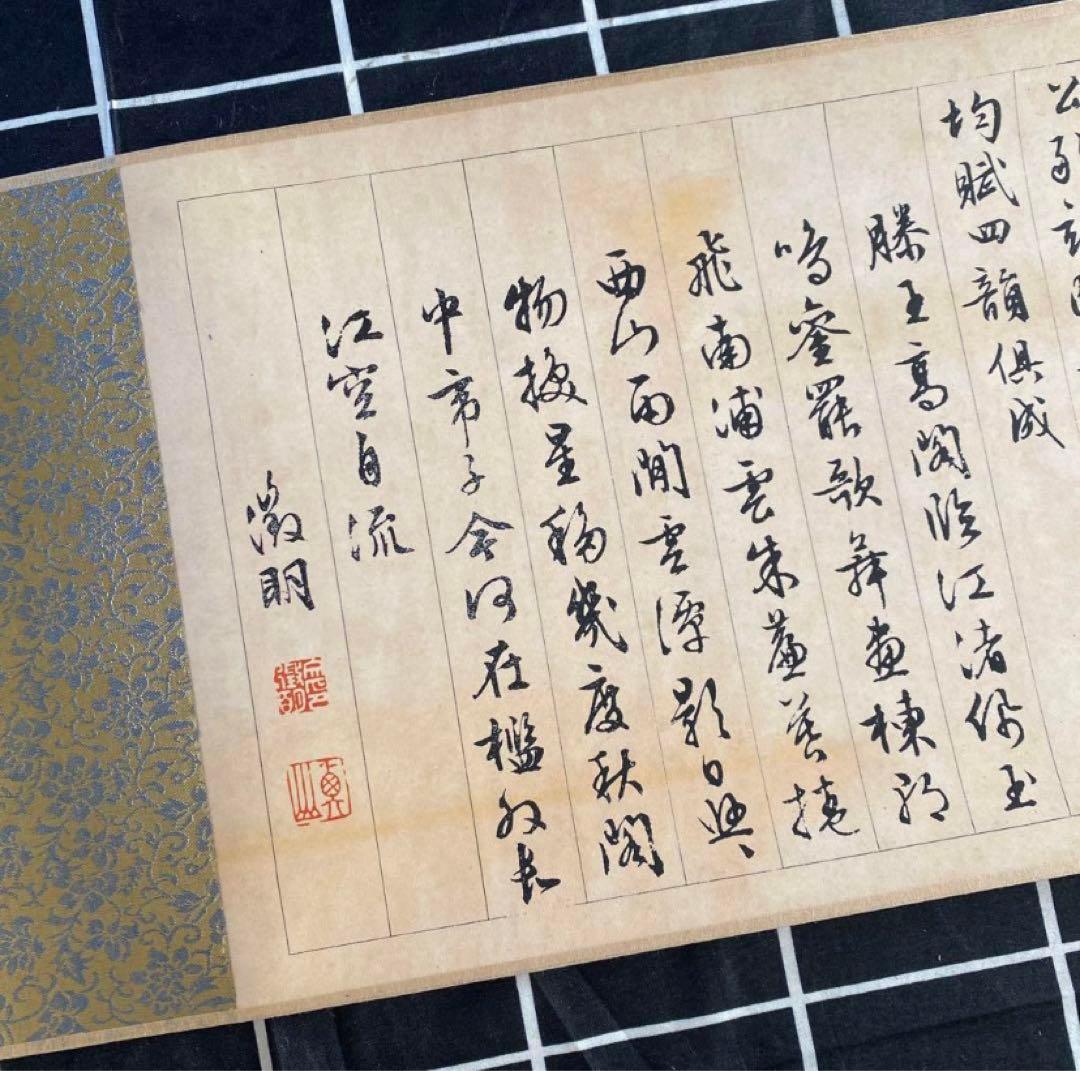 公
均賦四韻俱成
滕王高閣臨江渚佩玉
鳴鑾罷歌舞畫棟朝
飛南浦雲朱簾暮捲
西山雨閒雲潭影日悠〻
物換星移幾度秋閣
中帝子今何在檻外長
江空自流
徵明